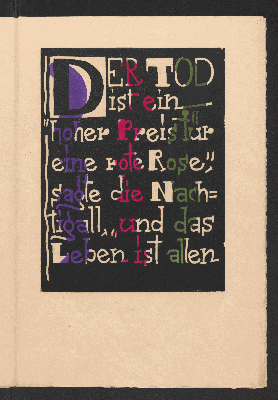 DER TOD
ist ein
"hoher Preis für
eine rote Rose,"
sagte die Nach=
tigall, "und das
Leben ist allen